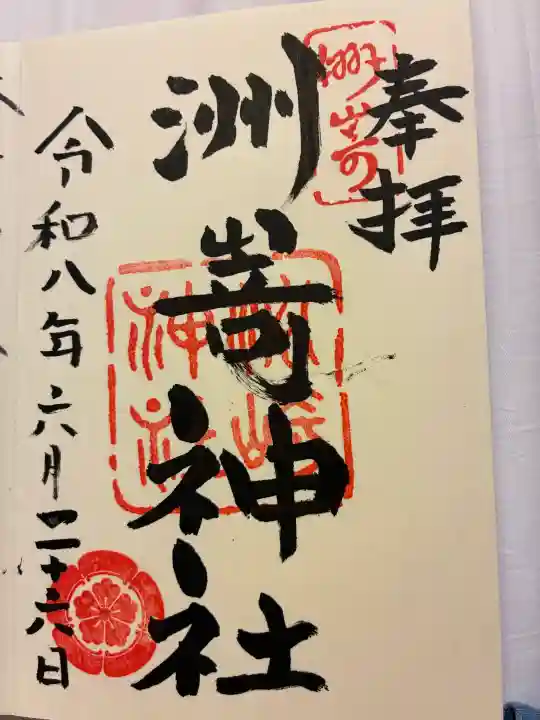 奉拝
洲嵜
洲嵜神社
洲崎神社
令和八年六月二十六日